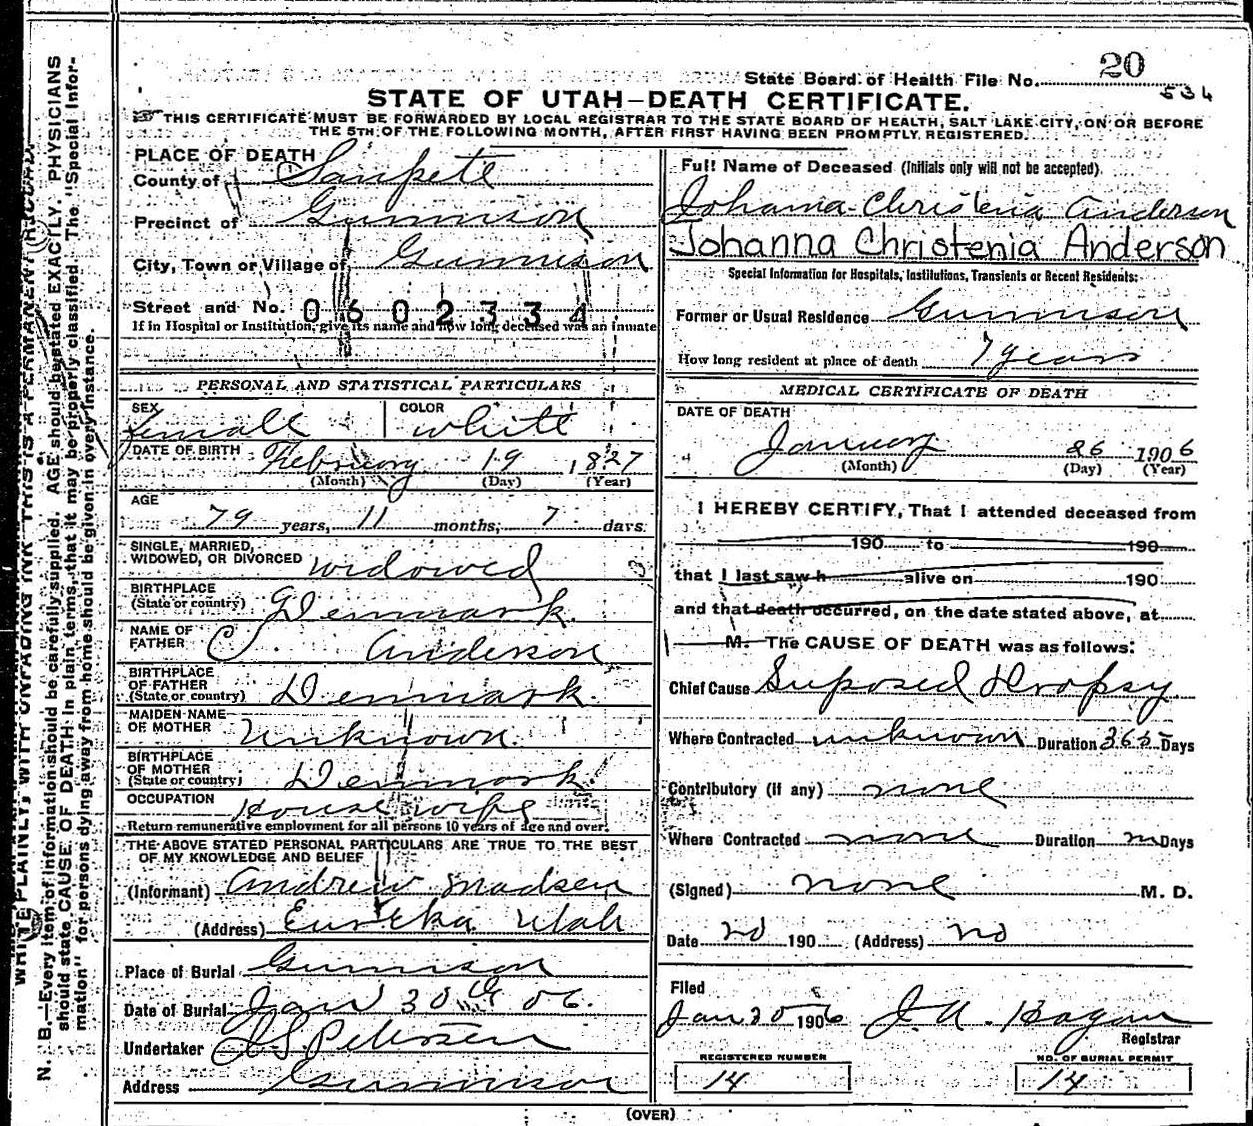 State Board of Health File No. 20
534
STATE OF UTAH—DEATH CERTIFICATE.
THIS CERTIFICATE MUST BE FORWARDED BY LOCAL REGISTRAR TO THE STATE BOARD OF HEALTH, SALT LAKE CITY, ON OR BEFORE
THE 5TH OF THE FOLLOWING MONTH, AFTER FIRST HAVING BEEN PROMPTLY REGISTERED.
PLACE OF DEATH
County of Sanpete
Precinct of Gunnison
City, Town or Village of Gunnison
Street and No. 0602334
If in Hospital or Institution, give its name and how long deceased was an inmate
PERSONAL AND STATISTICAL PARTICULARS
SEX Female COLOR White
DATE OF BIRTH February 19 1827
(Month) (Day) (Year)
AGE
79 years, 11 months, 7 days.
SINGLE, MARRIED,
WIDOWED, OR DIVORCED widowed 3
BIRTHPLACE
(State or country) Denmark.
NAME OF
FATHER C. Anderson
BIRTHPLACE
OF FATHER
(State or country) Denmark.
MAIDEN NAME
OF MOTHER Unknown.
BIRTHPLACE
OF MOTHER
(State or country) Denmark.
OCCUPATION House wife
Return remunerative employment for all persons 10 years of age and over.
THE ABOVE STATED PERSONAL PARTICULARS ARE TRUE TO THE BEST
OF MY KNOWLEDGE AND BELIEF
(Informant) Andrew Madsen
(Address) Eureka Utah
Place of Burial Gunnison
Date of Burial Jan 30th 06.
Undertaker J S Petersen
Address Gunnison
Full Name of Deceased (Initials only will not be accepted).
Johanna Christenia Anderson
Johanna Christenia Anderson
Special Information for Hospitals, Institutions, Transients or Recent Residents:
Former or Usual Residence Gunnison
How long resident at place of death 7 years
MEDICAL CERTIFICATE OF DEATH
DATE OF DEATH
January 26 1906
(Month) (Day) (Year)
I HEREBY CERTIFY, That I attended deceased from
190 to 190
that I last saw h alive on 190
and that death occurred, on the date stated above, at
M. The CAUSE OF DEATH was as follows:
Chief Cause Suposed Dropsy
Where Contracted unknown Duration 365 Days
Contributory (if any) none
Where Contracted none Duration Days
(Signed) none M. D.
Date no 190 (Address) no
Filed
Jan 30 1906 J. A. Hagan
Registrar
REGISTERED NUMBER
14
NO. OF BURIAL PERMIT
14
(OVER)
WRITE PLAINLY, WITH UNFADING INK THIS IS A PERMANENT RECORD
N. B.—Every item of information should be carefully supplied. AGE should be stated EXACTLY. PHYSICIANS
should state CAUSE OF DEATH in plain terms, that it may be properly classified. The "Special Infor-
mation" for persons dying away from home should be given in every instance.